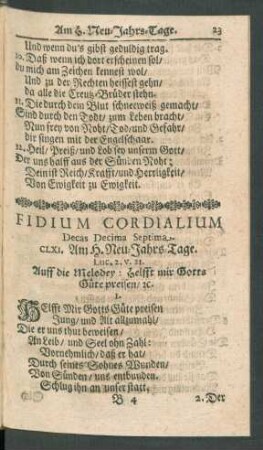 Am H. Neu-Jahrs-Tage. 23
Und wenn du's gibst gedultig trag.
20. Daß wenn ich dort erscheinen sol/
du mich am Zeichen kennest wol/
Und zu der Rechten heissest gehn/
da alle die Creutz-Brüder stehn.
21. Die durch dein Blut schneeweiß gemacht/
Sind durch den Todt/ zum Leben bracht/
Nun frey von Noht/ Tod/ und Gefahr/
dir singen mit der Engelschaar.
22. Heil/ Preiß/ und Lob sey unserm Gott/
Der uns halff aus der Sünden Noht:
Dein ist Reich/ Krafft/ und Herrligkeit/
Von Ewigkeit zu Ewigkeit.
FIDIUM CORDIALIUM
Decas Decima Septima.
CLXI. Am H. Neu-Jahrs-Tage.
Luc. 2. v. 21.
Auff die Melodey: Helfft mir Gotts
Güte preisen/ ꝛc.
1.
HElfft Mir Gotts Güte preisen
Jung/ und Alt allzumahl/
Die er uns thut beweisen/
An Leib/ und Seel ohn Zahl:
Vornehmlich/ daß er hat/
Durch seines Sohnes Wunden/
Von Sünden/ uns entbunden.
Schlug ihn an unser statt.
B 4 2. Der